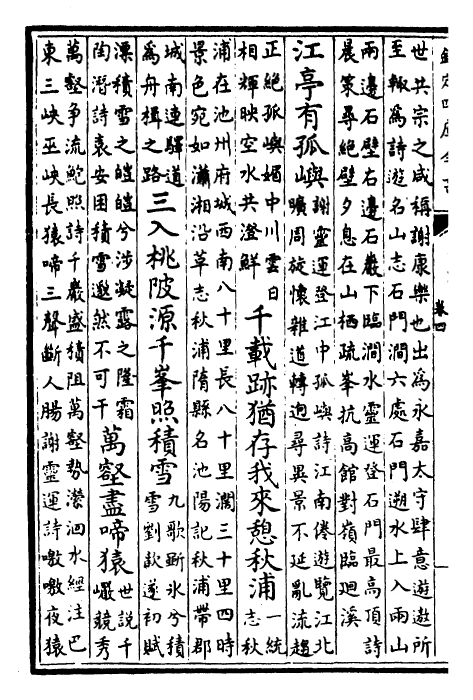 欽定四庫全書
卷四
世共宗之咸稱謝康樂也出為永嘉太守肆意遊遨所
至輙為詩遊名山志石門澗六處石門遡水上入兩山
兩邊石壁右邊石巖下臨澗水靈運登石門最高頂詩
晨策尋絶壁夕息在山棲疏峯抗高館對嶺臨廻溪
江亭有孤嶼
謝靈運登江中孤嶼詩江南倦遊覽江北
曠周旋懷雜道轉逈尋異景不延亂流趨
正絶孤嶼媚中川雲日
相輝映空水共澄鮮
千載跡猶存我來憩秋浦
一統
志秋
浦在池州府城西南八十里長八十里濶三十里四時
景色宛如瀟湘沿革志秋浦隋縣名池陽記秋浦帶郡
城南連驛道
為舟楫之路
三入桃陂源千峯照積雪
九歌斲氷兮積
雪劉歆遂初賦
漂積雪之皚皚兮涉凝露之隆霜
陶潛詩袁安困積雪邈然不可干
萬壑盡啼猿
世説千
巖競秀
萬壑争流鮑照詩千巖盛積阻萬壑勢濙洄水經注巴
東三峽巫峽長猿啼三聲斷人腸謝靈運詩噭噭夜猿